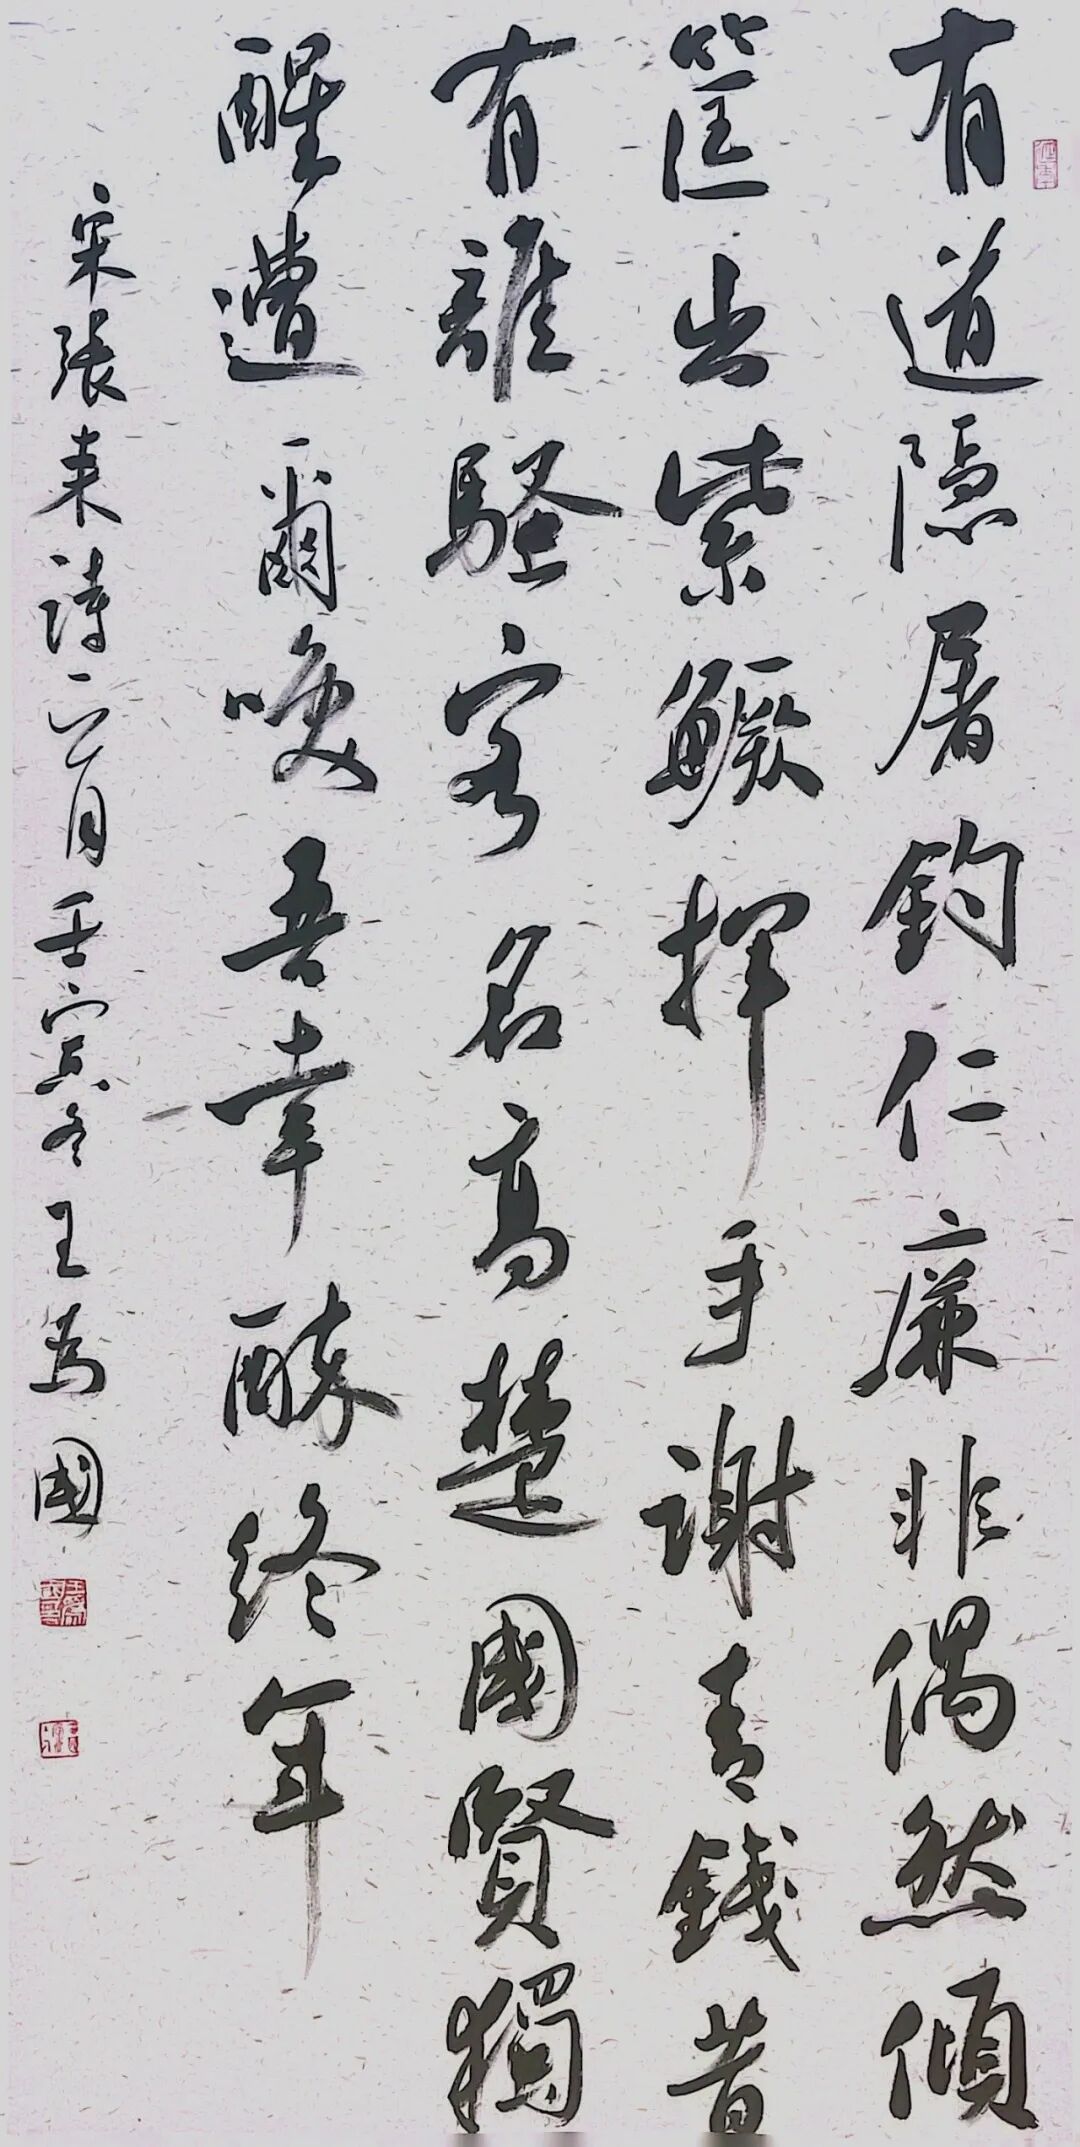 有道隐屠釣仁廉非偶然傾
筐出紫鱖揮手謝青錢昔
有離騷客名高楚國賢獨
醒遭爾喚吾幸醉終年
宋張耒詩一首壬寅冬王為國